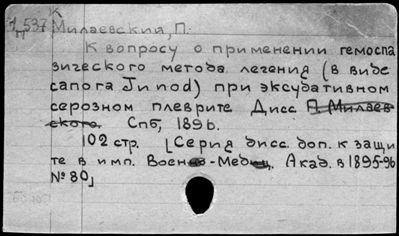 К
1,537
п
Милаевский, П.
К вопросу о применении гемоспа
зического метода лечения (в виде
сапога Junod) при эксудативном
серозном плеврите Дисс. П. Милаев-
ского. Спб, 1896.
102 стр. [Серия дисс. доп. к защи
те в имп. Военно-Медиц. Акад. в 1895-96
№ 80]